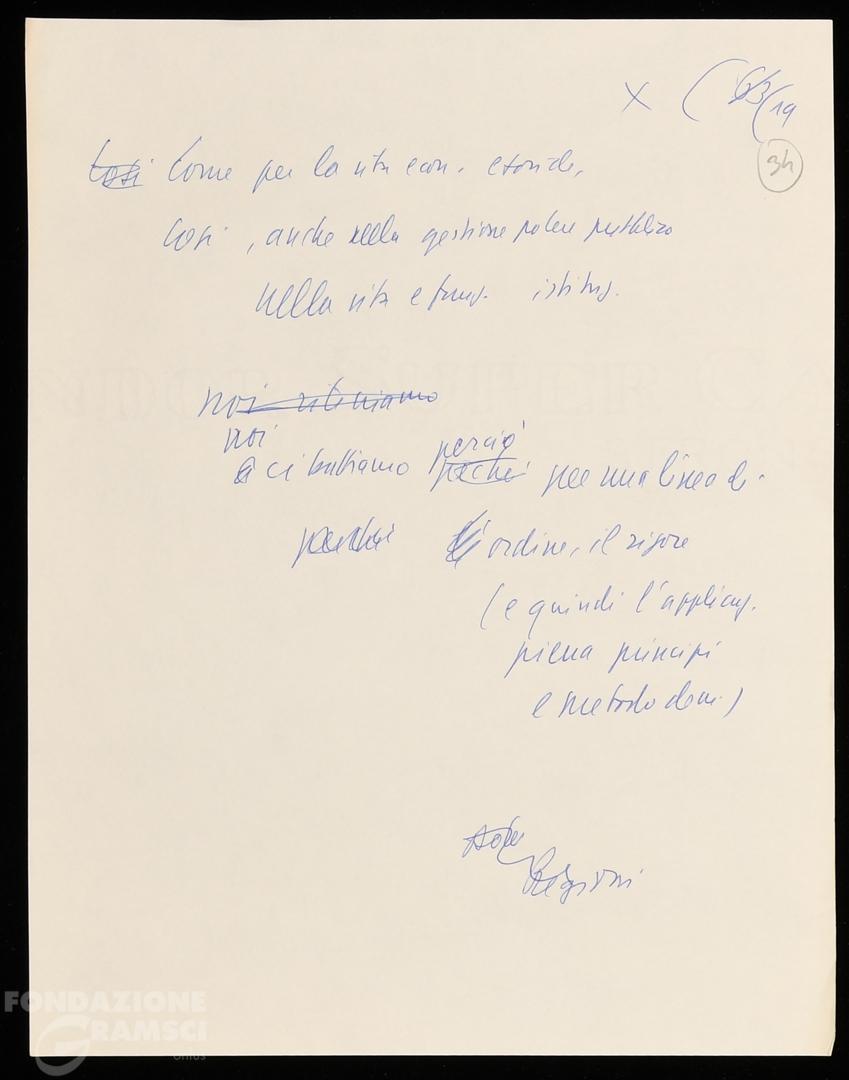 x ( 63 (19
34
Cosi Come per la vita econ. e sociale,
Cosi, anche nella gestione potere pubblico
nella vita e funz. istituz.
noi riteniamo
noi
ci battiamo perciò perché per una linea di
perché l'ordine, il rigore
(e quindi l'applicaz.
piena principi
e metodo dem.)
Regioni
FONDAZIONE
GRAMSCI
onlus